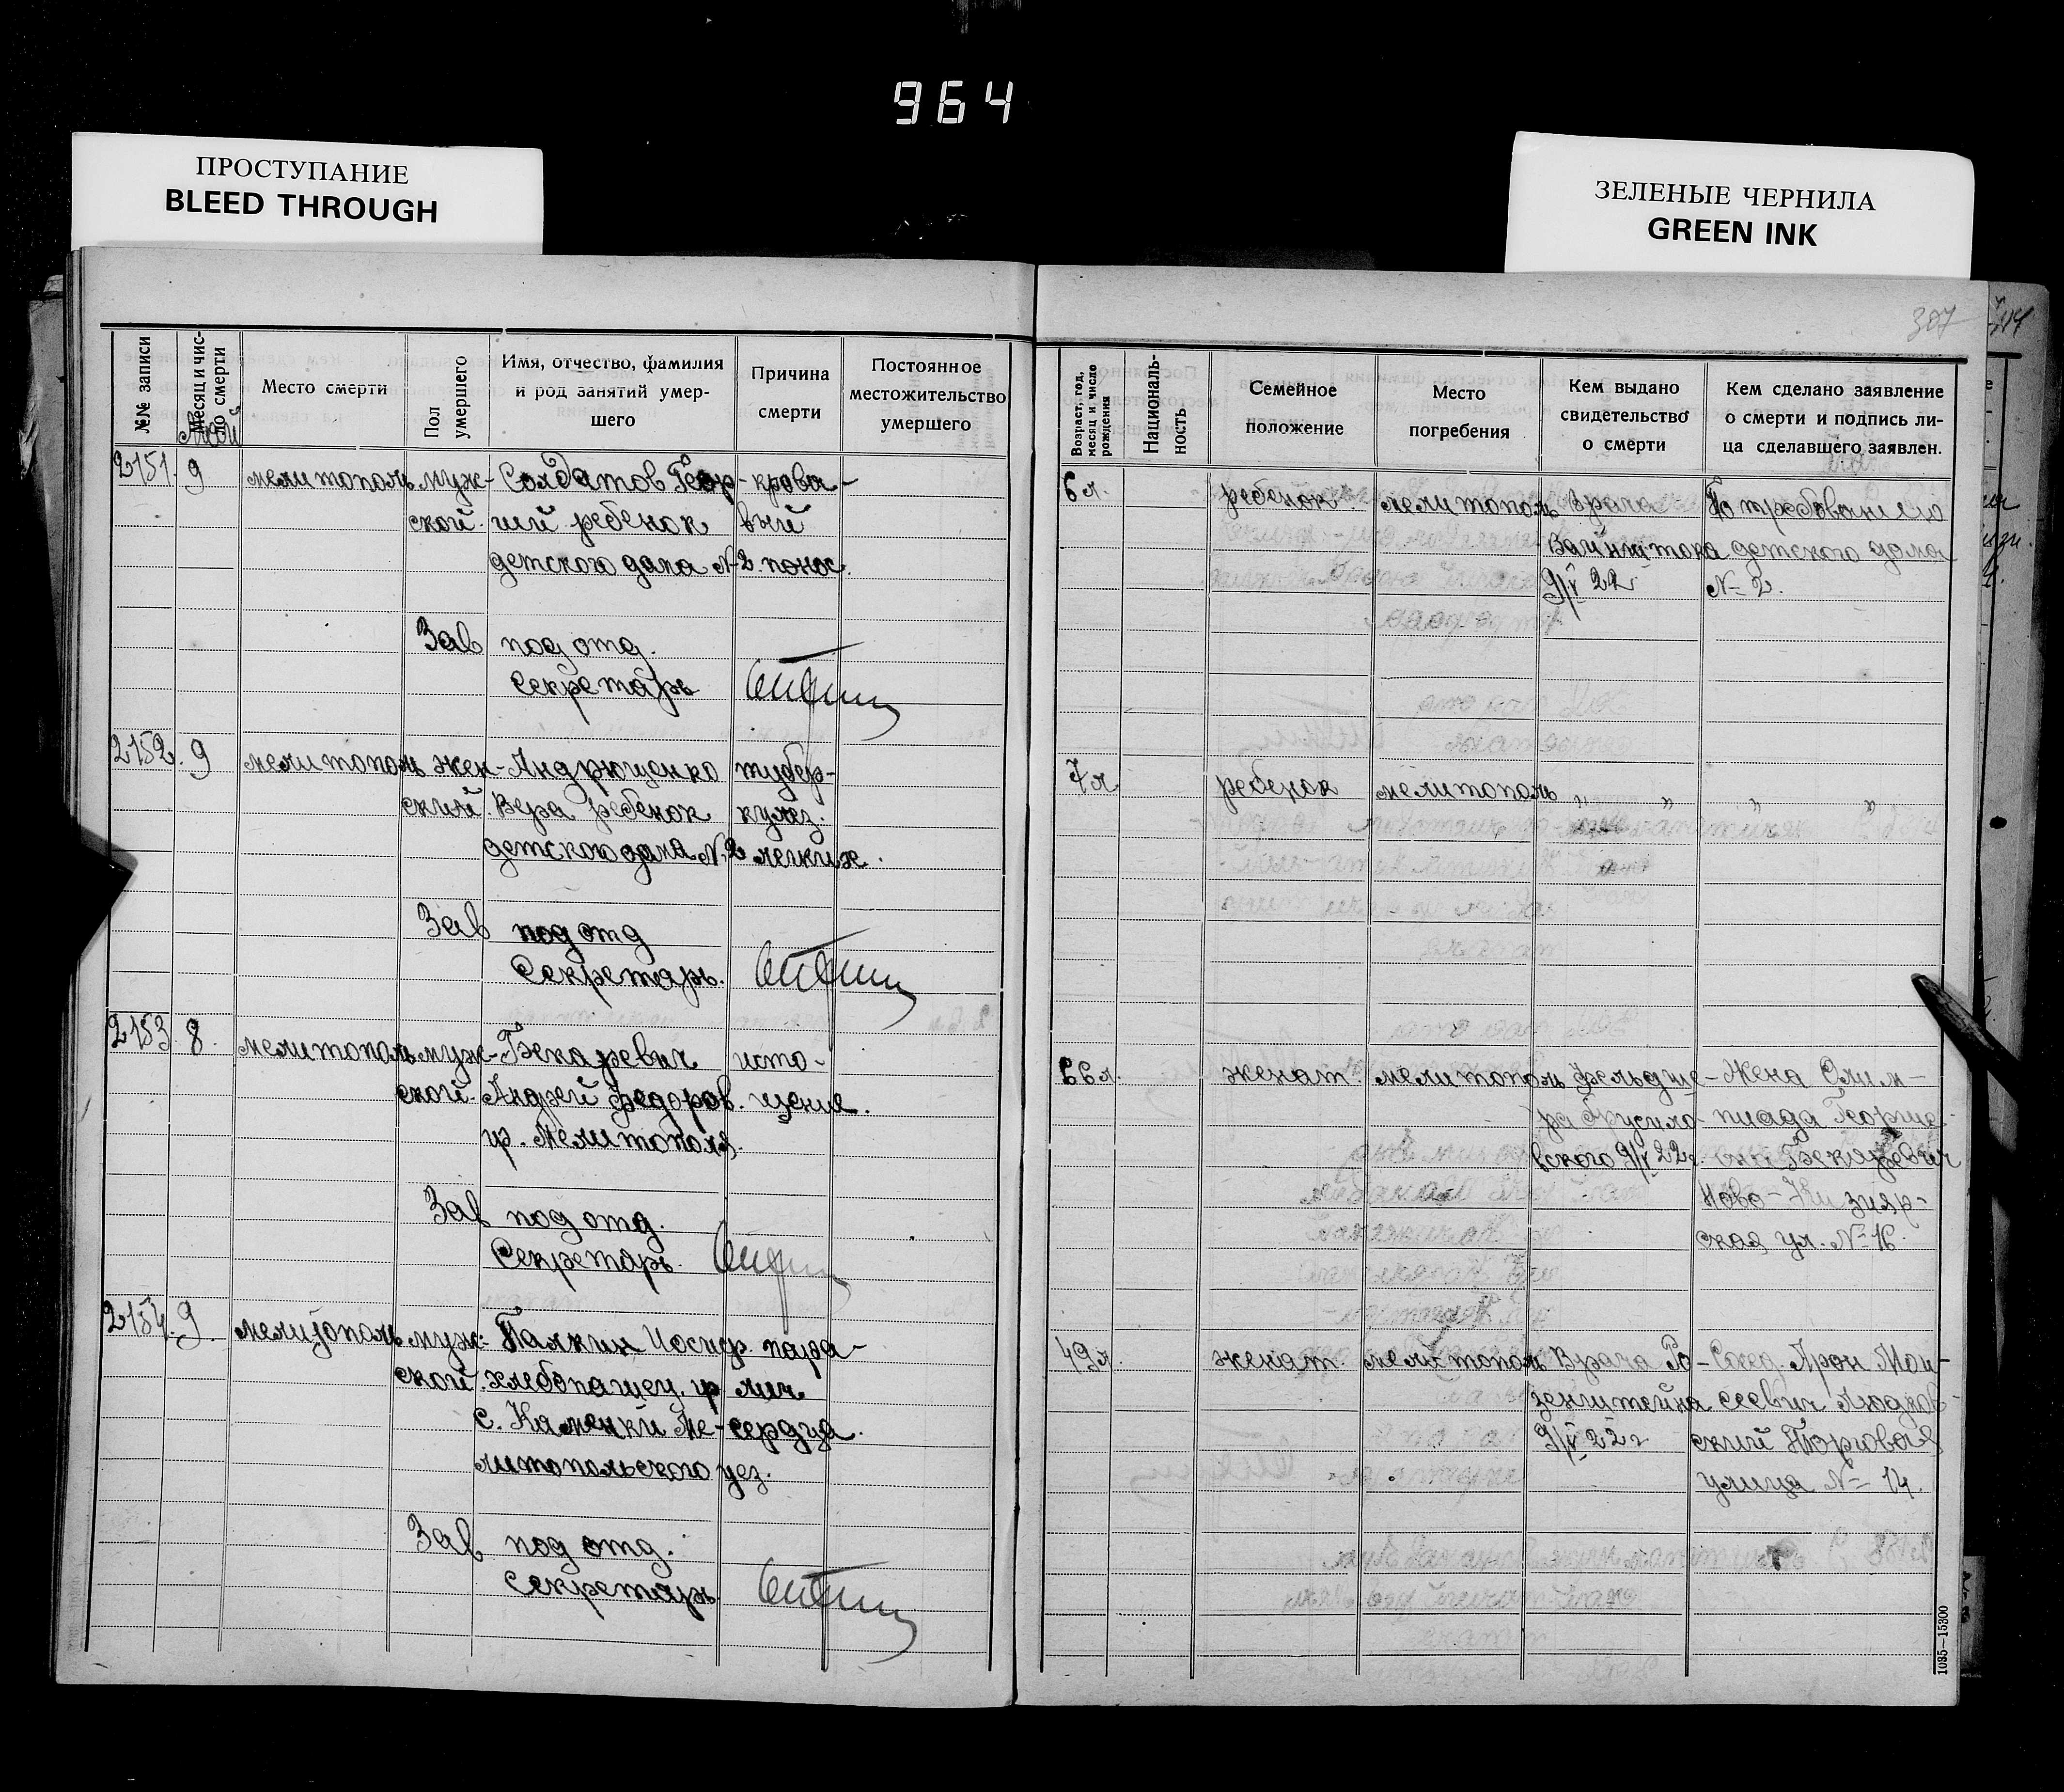 964
ПРОСТУПАНИЕ
BLEED THROUGH
ЗЕЛЕНЫЕ ЧЕРНИЛА
GREEN INK
307
№№ записи
Месяц и число смерти
Место смерти
Пол умершего
Имя, отчество, фамилия
и род занятий умер-
шего
Причина
смерти
Постоянное
местожительство
умершего
Возраст, год, месяц и число рождения
Националь-
ность
Семейное
положение
Место
погребения
Кем выдано
свидетельство
о смерти
Кем сделано заявление
о смерти и подпись ли-
ца сделавшего заявлен.
Май
2151. 9 мелитополь муж- Солдатов Геор- крова-
ской. гий ребенок вый
детского дома №2. понос.
Зав под отд.
Секретарь
6 л. ребенок. мелитополь Врача По требованию
Вайнштока детского дома
9/V 22 г № 2.
2152. 9 мелитополь жен- Андрющенко тубер-
ский. Вера ребенок кулез.
детского дома №2 легких.
Зав под отд
Секретарь.
7 л ребенок мелитополь " " " "
2153 8. мелитополь муж- Бекаревич исто-
ской. Андрей Федоров. щение.
гр. Мелитополя.
Зав под отд.
Секретарь.
66 л. женат. мелитополь фельдше- Жена Олим-
вского 9/V 22 г. Бекаревич
ская ул. № 16.
2154. 9. мелитополь муж- Палкин Иосиф пара-
ской. хлебопашец. гр лич
с. Каменки Ме- сердца.
литопольского уез.
Зав под отд.
Секретарь
49 л. женат. мелитополь Врача Ро- Сосед Арон Мои-
зенштейна сеевич
9/V 22 г ский Торговая
улица № 14.
1035—15300